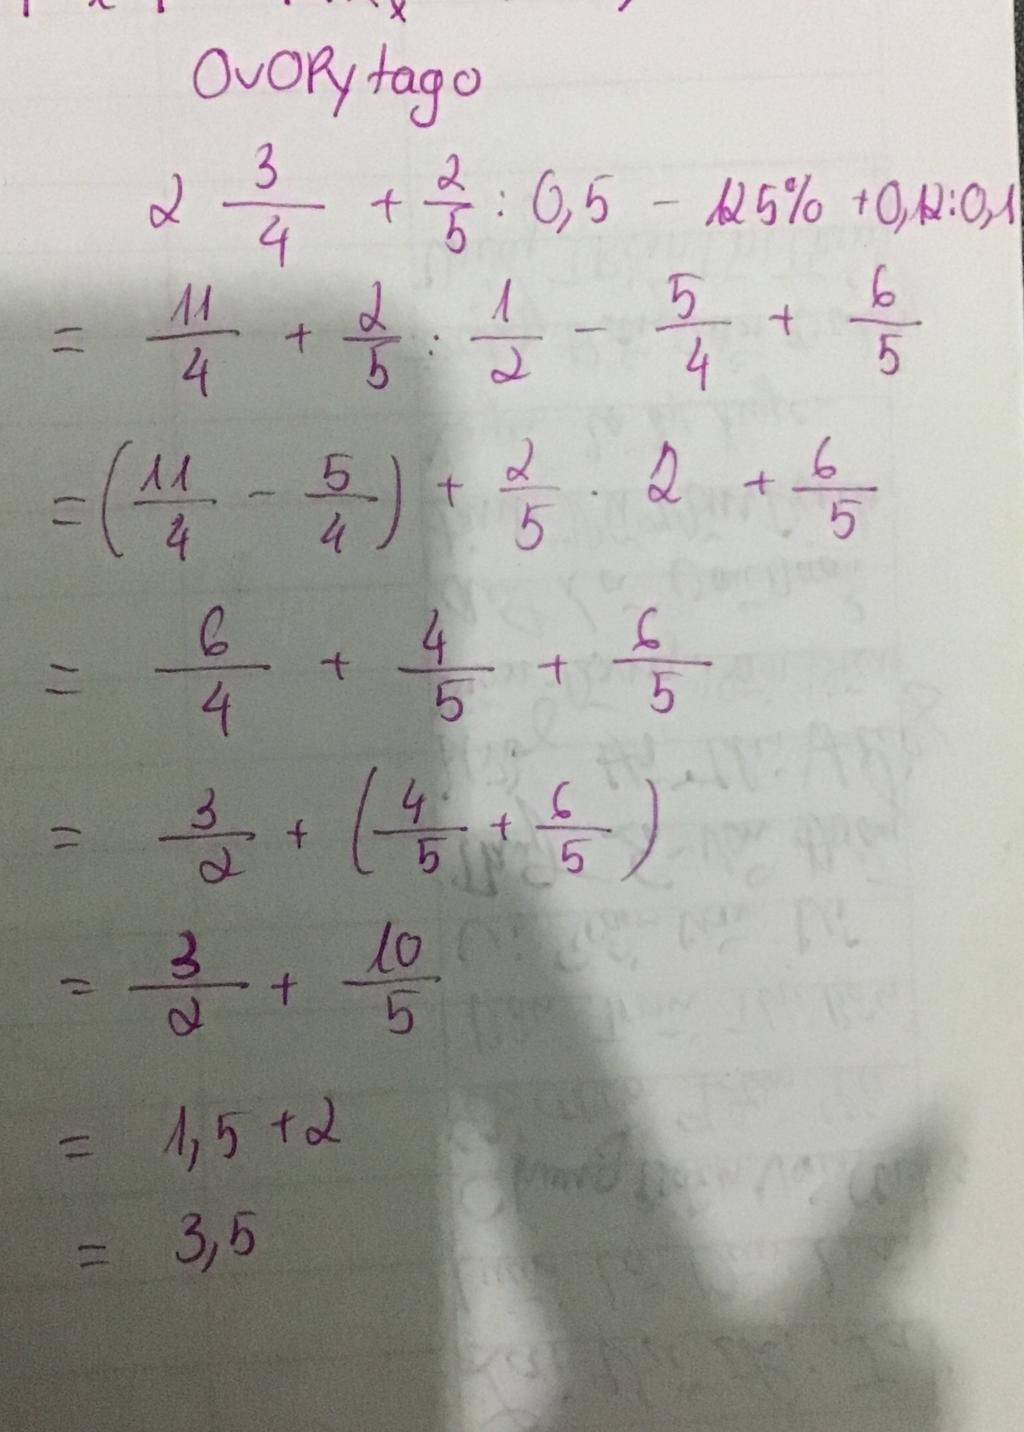 OvORytago
2 3/4 + 2/5 : 0,5 - 125% + 0,12:0,1
= 11/4 + 2/5 : 1/2 - 5/4 + 6/5
= (11/4 - 5/4) + 2/5 . 2 + 6/5
= 6/4 + 4/5 + 6/5
= 3/2 + (4/5 + 6/5)
= 3/2 + 10/5
= 1,5 + 2
= 3,5